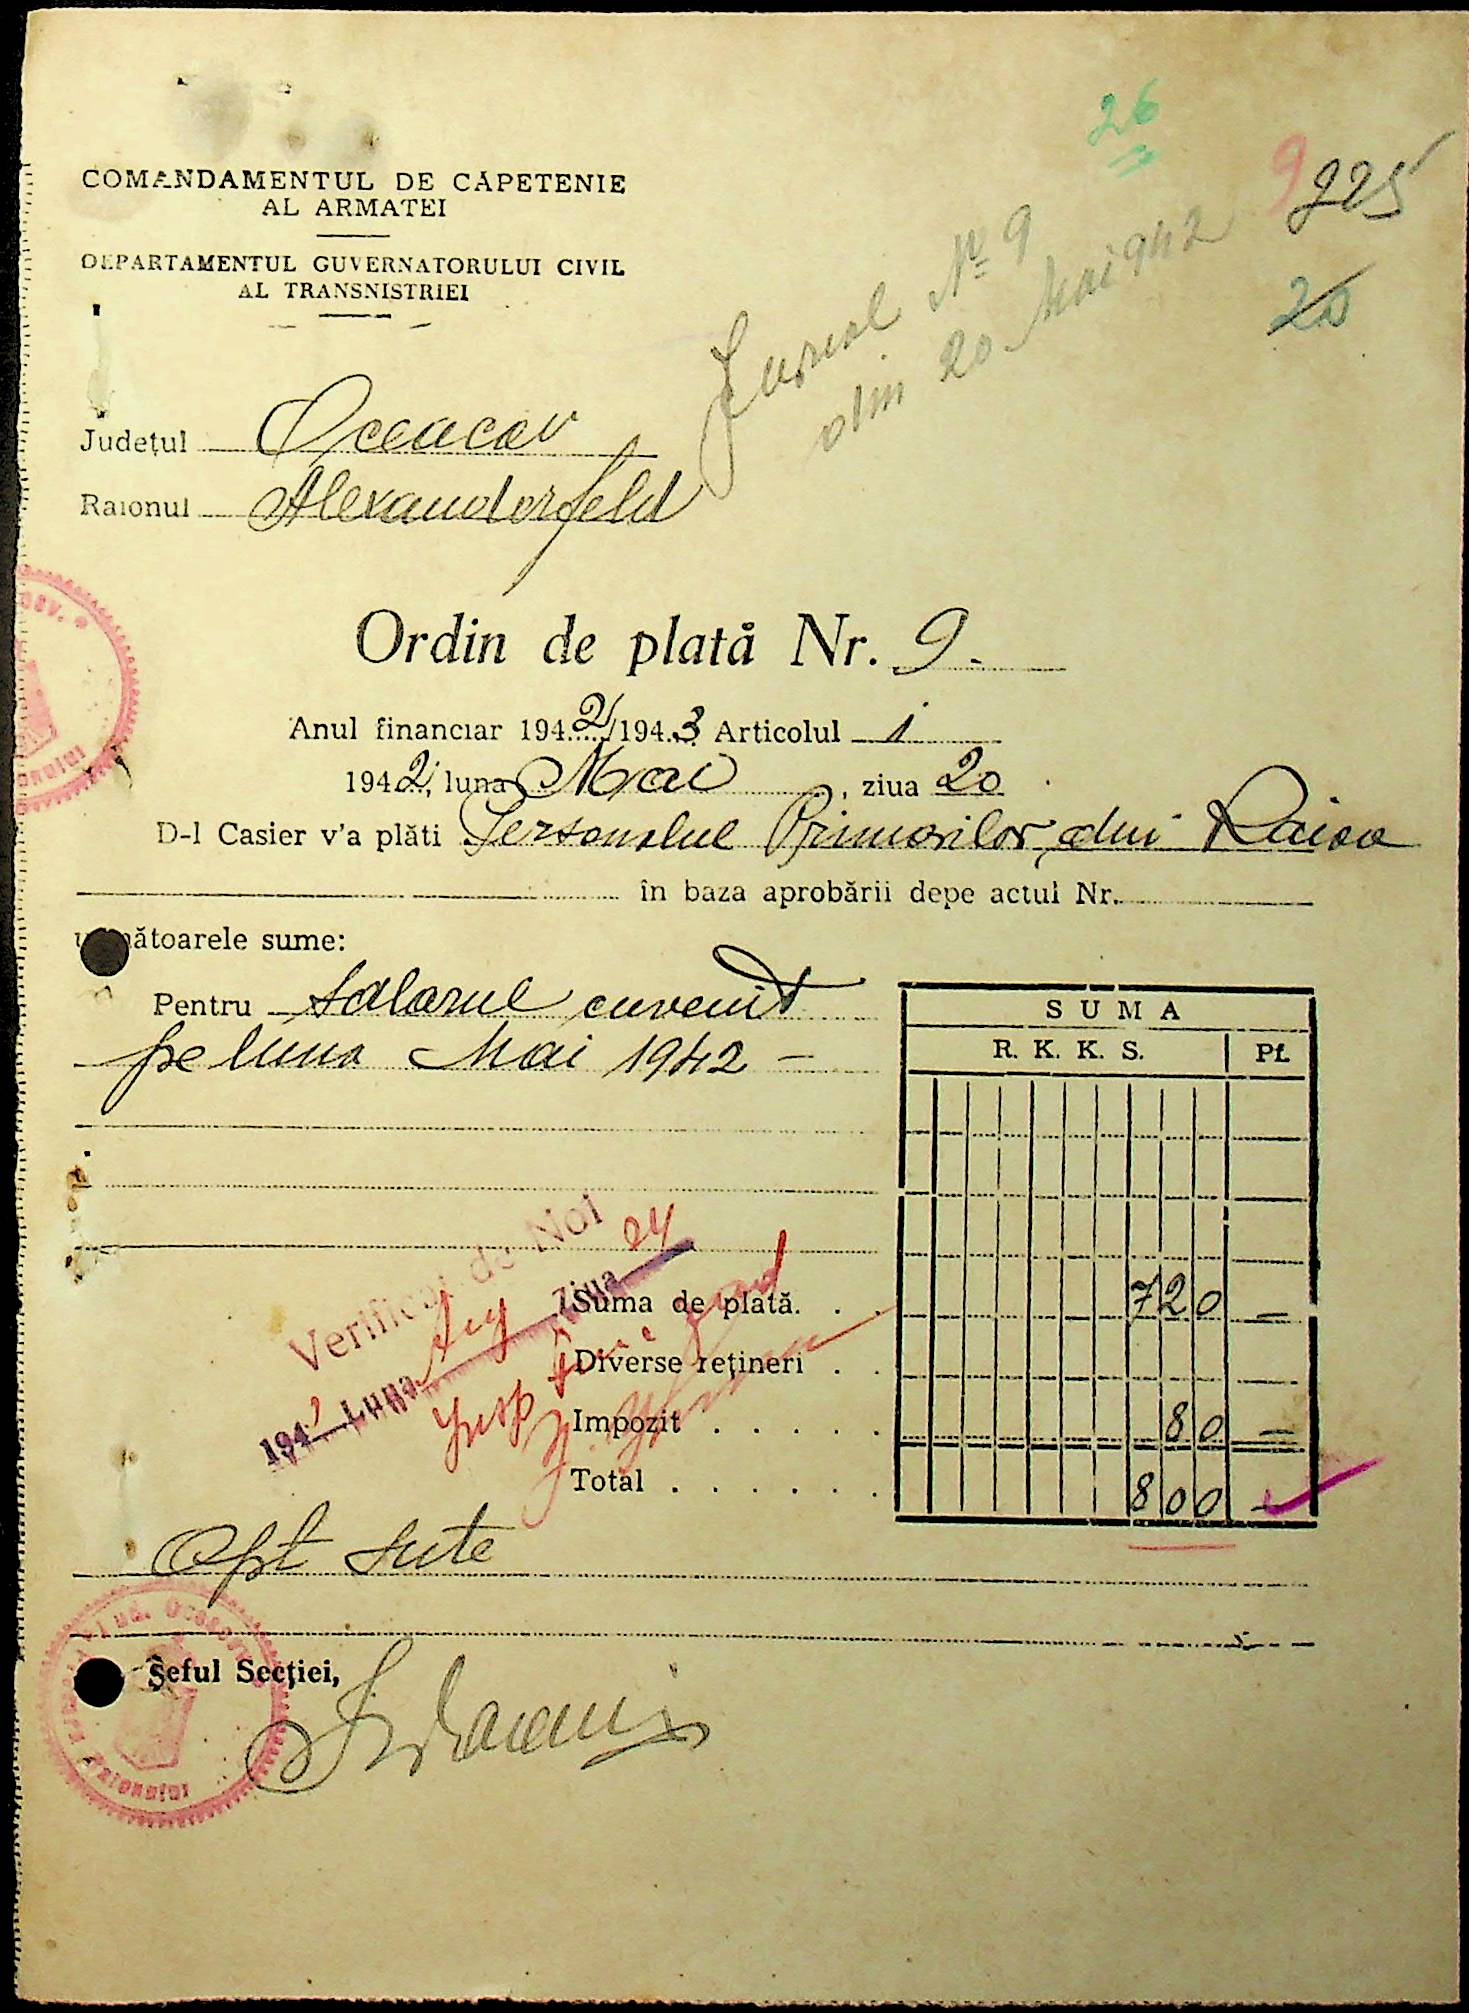 26
9 225
COMANDAMENTUL DE CAPETENIE
AL ARMATEI
DEPARTAMENTUL GUVERNATORULUI CIVIL
AL TRANSNISTRIEI
20
Jurnal No 9
din 20 Mai 942
Județul Oceacov
Raionul Alexanderfeld
Ordin de plată Nr. 9.
Anul financiar 1942/1943 Articolul 1
1942, luna Mai, ziua 20
D-l Casier v'a plăti Personalul Primăriilor, din Raion
în baza aprobării depe actul Nr.
următoarele sume:
Pentru salarul cuvenit
pe luna Mai 1942 —
SUMA
R. K. K. S. Pf.
Verificat de Noi
194 Luna Aug Ziua 24
Suma de plată. . . 720 —
Diverse rețineri . .
Impozit . . . . . 80 —
Total . . . . . . 800 —
Opt sute
Șeful Secției,
Raionului